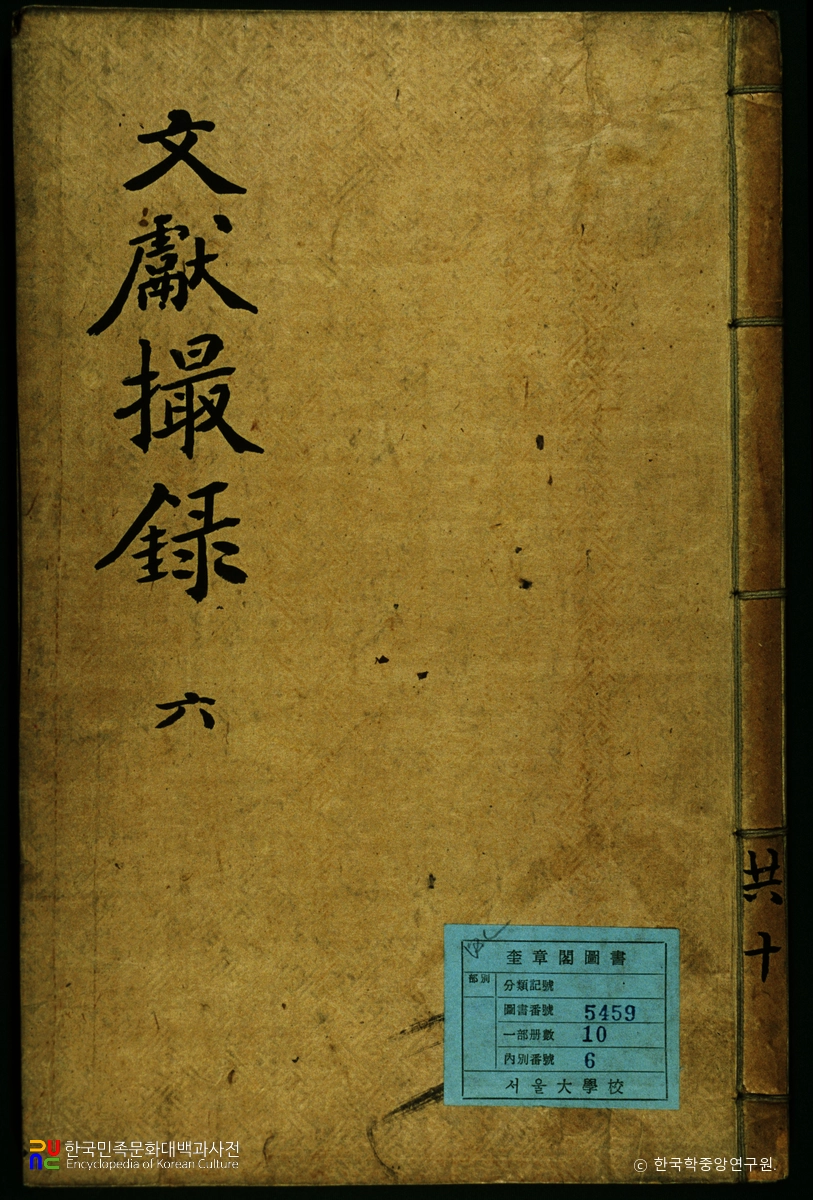 文獻撮錄 六
共十
奎章閣圖書
部別
分類記號
圖書番號 5459
一部册數 10
內別番號 6
서울大學校
한국민족문화대백과사전
Encyclopedia of Korean Culture
© 한국학중앙연구원